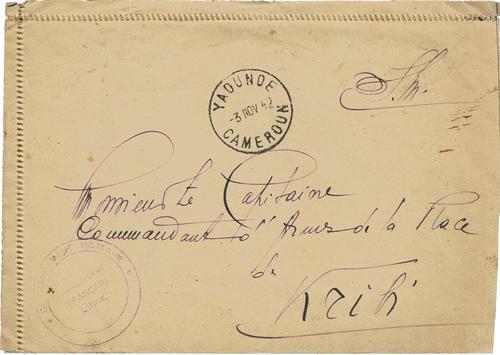 YAOUNDE
-3 NOV 42
CAMEROUN
F.M.
Monsieur le Capitaine
Commandant d'Armes de la Place
de
Kribi
MILITAIRE